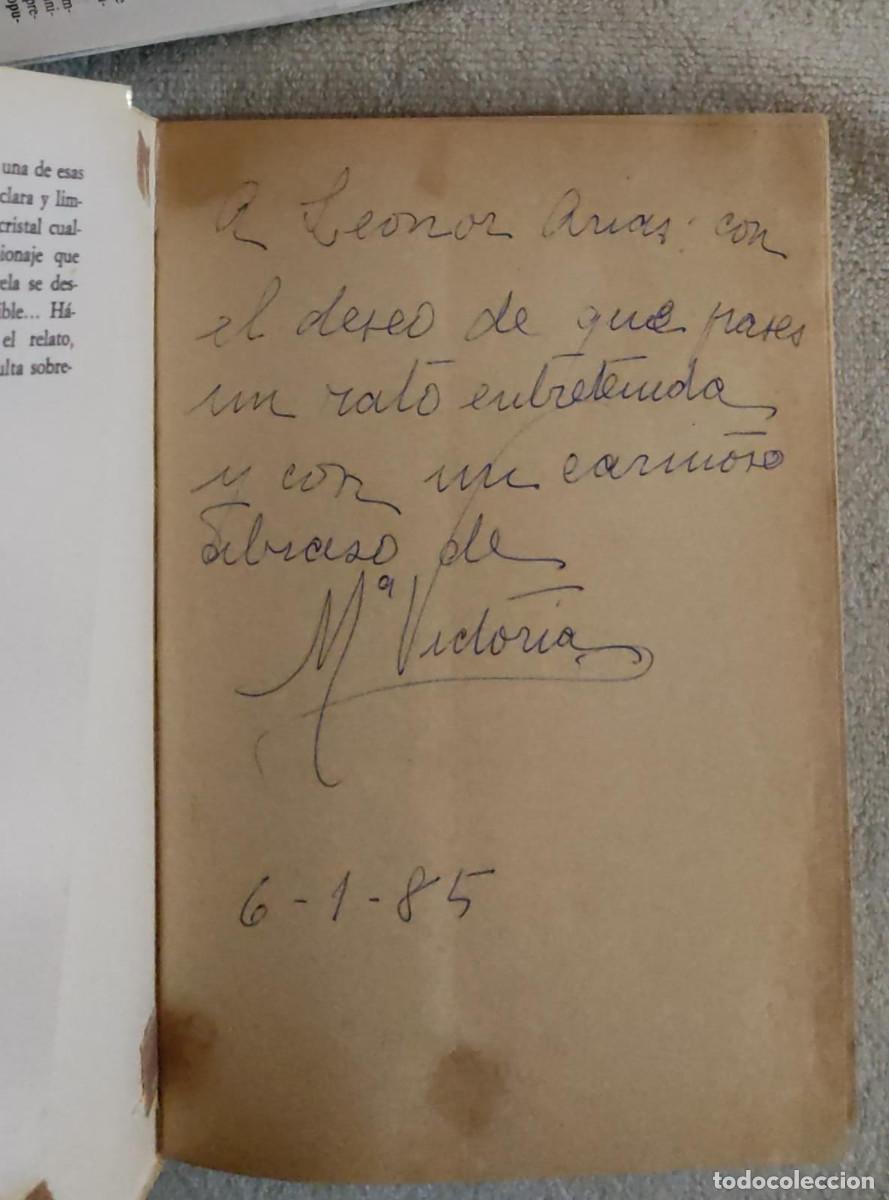 una de esas
clara y lim-
cristal cual-
ionaje que
ela se des-
ible... Há-
el relato,
ulta sobre-
A Leonor Arias con
el deseo de que pases
un rato entretenida
y con un cariñoso
abraso de
Mª Victoria
6-1-85
todocoleccion